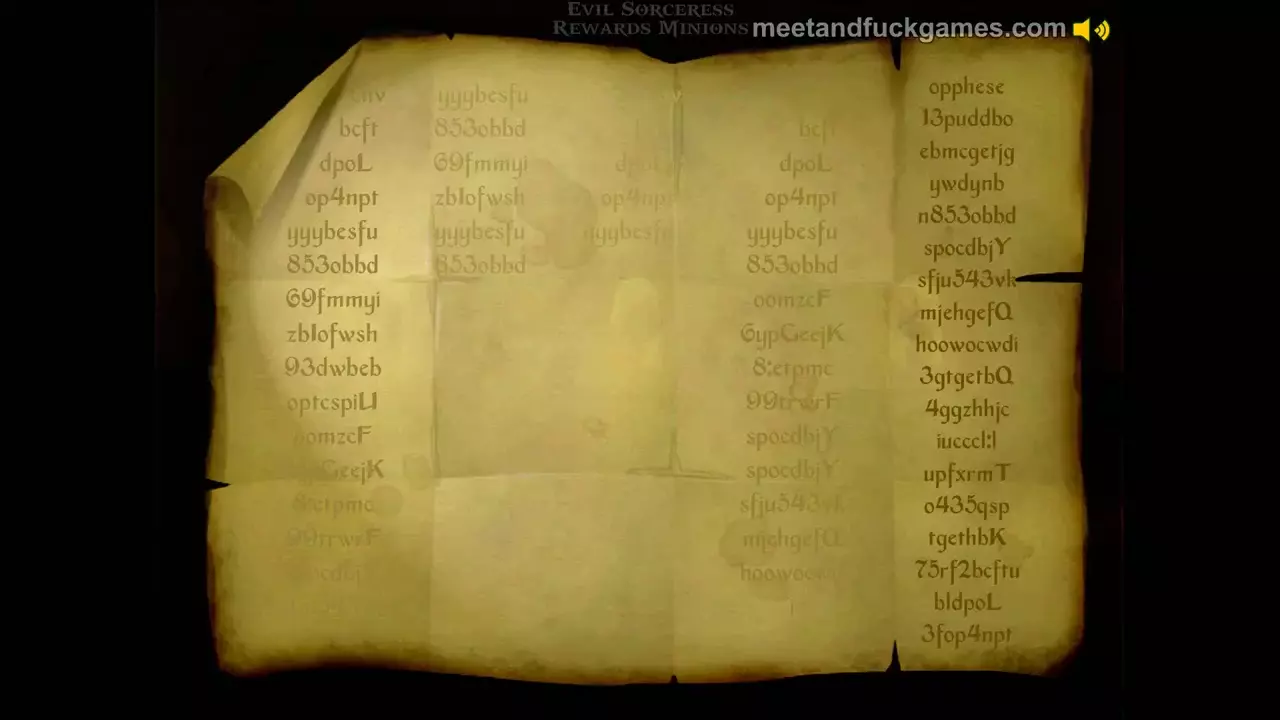 Evil Sorceress
Rewards Minions
meetandfuckgames.com
bcft
dpoL
op4npt
yyybesfu
853obbd
69fmmyi
zb1ofwsh
93dwbeb
optcspiU
oomzcF
GeejK
8:etpmc
99rrwrF
yyybesfu
853obbd
69fmmyi
zb1ofwsh
yyybesfu
853obbd
dpoL
op4npt
yyybesfu
bcft
dpoL
op4npt
yyybesfu
853obbd
oomzcF
6ypGeejK
8:etpmc
99rrwrF
spocdbjY
spocdbjY
sfju543vk
mjehgefQ
hoowocwdi
opphese
13puddbo
ebmcgetjg
ywdynb
n853obbd
spocdbjY
sfju543vk
mjehgefQ
hoowocwdi
3gtgetbQ
4ggzhhjc
iucccl:l
upfxrmT
o435qsp
tgethbK
75rf2bcftu
bldpoL
3fop4npt